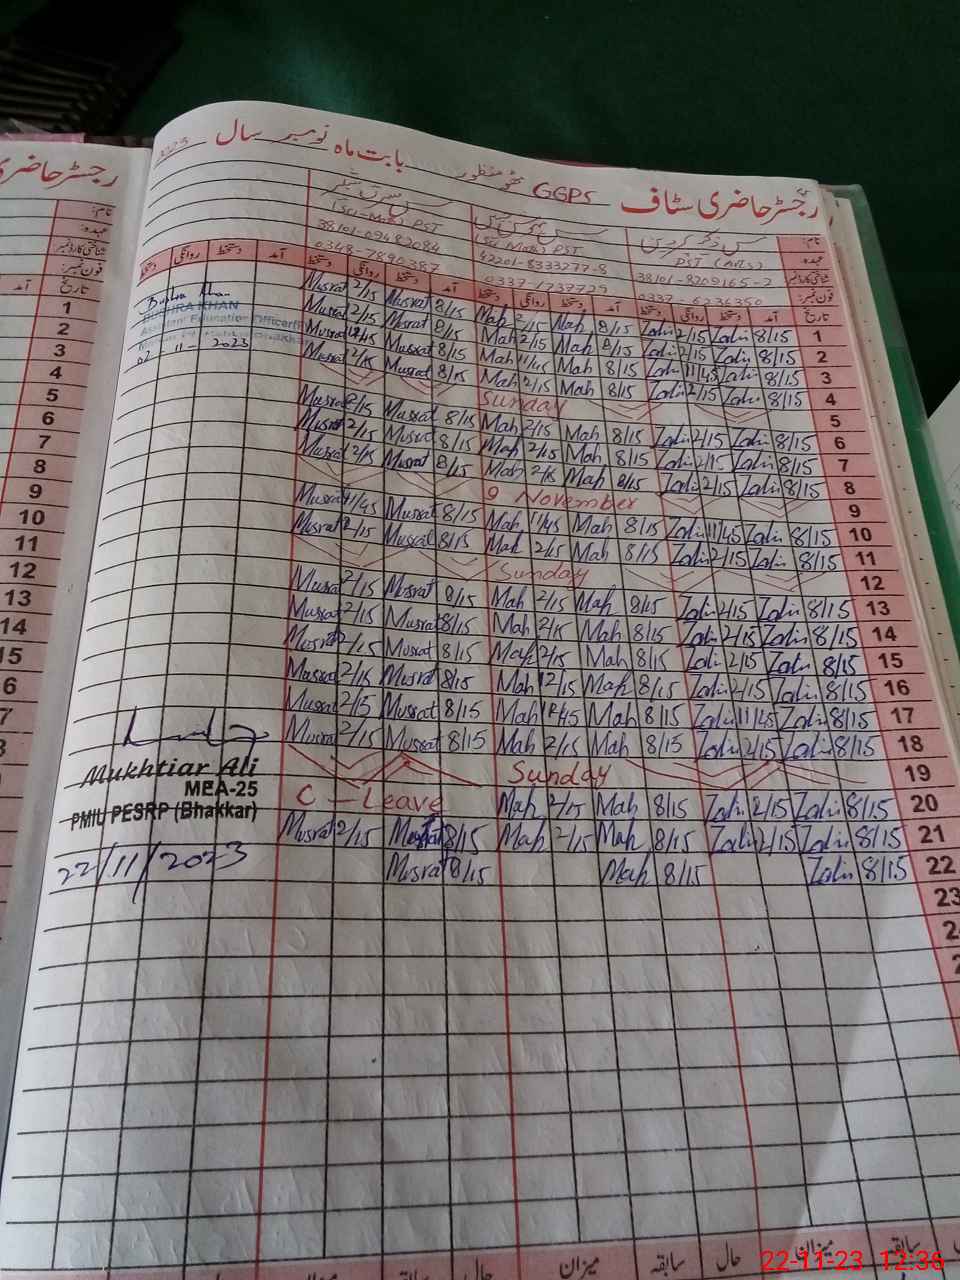 رجسٹر حاضری سٹاف GGPS بابت ماہ نومبر سال 2023
نام:
عہدہ: PST (Arts)
شناختی کارڈ نمبر 38101-8209165-2 42201-8333277-8 38101-09482084
فون نمبر: 0337-6236350 0337-1737729 0348-7890387
تاریخ آمد دستخط روانگی دستخط آمد دستخط روانگی دستخط آمد دستخط روانگی دستخط آمد دستخط روانگی دستخط
Musrat 2/15 Musrat 8/15 Mah 2/15 Mah 8/15 Zahi 2/15 Zahi 8/15 1
Musrat 2/15 Musrat 8/15 Mah 2/15 Mah 8/15 Zahi 2/15 Zahi 8/15 2
Musrat Musrat 8/15 Mah 11/45 Mah 8/15 Zahi 11/45 Zahi 8/15 3
Musrat 2/15 Musrat 8/15 Mah 2/15 Mah 8/15 Zahi 2/15 Zahi 8/15 4
Sunday 5
Musrat 2/15 Musrat 8/15 Mah 2/15 Mah 8/15 Zahi 2/15 Zahi 8/15 6
Musrat 2/15 Musrat 8/15 Mah 2/15 Mah 8/15 Zahi 2/15 Zahi 8/15 7
Musrat 2/15 Musrat 8/15 Mah 2/15 Mah 8/15 Zahi 2/15 Zahi 8/15 8
9 November 9
Musrat 11/45 Musrat 8/15 Mah 11/45 Mah 8/15 Zahi 11/45 Zahi 8/15 10
Musrat 2/15 Musrat 8/15 Mah 2/15 Mah 8/15 Zahi 2/15 Zahi 8/15 11
Sunday 12
Musrat 2/15 Musrat 8/15 Mah 2/15 Mah 8/15 Zahi 2/15 Zahi 8/15 13
Musrat 2/15 Musrat 8/15 Mah 2/15 Mah 8/15 Zahi 2/15 Zahi 8/15 14
Musrat 2/15 Musrat 8/15 Mah 2/15 Mah 8/15 Zahi 2/15 Zahi 8/15 15
Musrat 2/15 Musrat 8/15 Mah 12/15 Mah 8/15 Zahi 2/15 Zahi 8/15 16
Musrat 2/15 Musrat 8/15 Mah Mah 8/15 Zahi 11/45 Zahi 8/15 17
Musrat 2/15 Musrat 8/15 Mah 2/15 Mah 8/15 Zahi 2/15 Zahi 8/15 18
Sunday 19
C - Leave Mah 2/15 Mah 8/15 Zahi 2/15 Zahi 8/15 20
Musrat 2/15 Musrat 8/15 Mah 2/15 Mah 8/15 Zahi 2/15 Zahi 8/15 21
Musrat 8/15 Mah 8/15 Zahi 8/15 22
23
Bushra Khan
BUSHRA KHAN
Assistant Education Officer
02-11-2023
Mukhtiar Ali
MEA-25
PMIU PESRP (Bhakkar)
22/11/2023
رجسٹر حاضری
نام:
عہدہ:
شناختی کارڈ نمبر
فون نمبر:
تاریخ آمد
1
2
3
4
5
6
7
8
9
10
11
12
13
14
15
6
7
سابقہ میزان حال سابقہ میزان حال
22-11-23 12:36